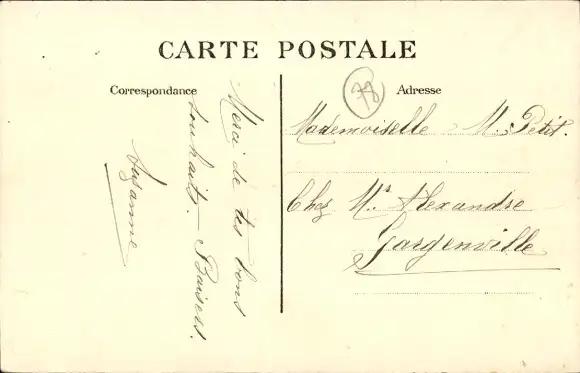 CARTE POSTALE
Correspondance
Merci de tes bons
souhaits. Baisers.
Suzanne
78
Adresse
Mademoiselle M. Petit.
Chez Mr Alexandre
Gargenville